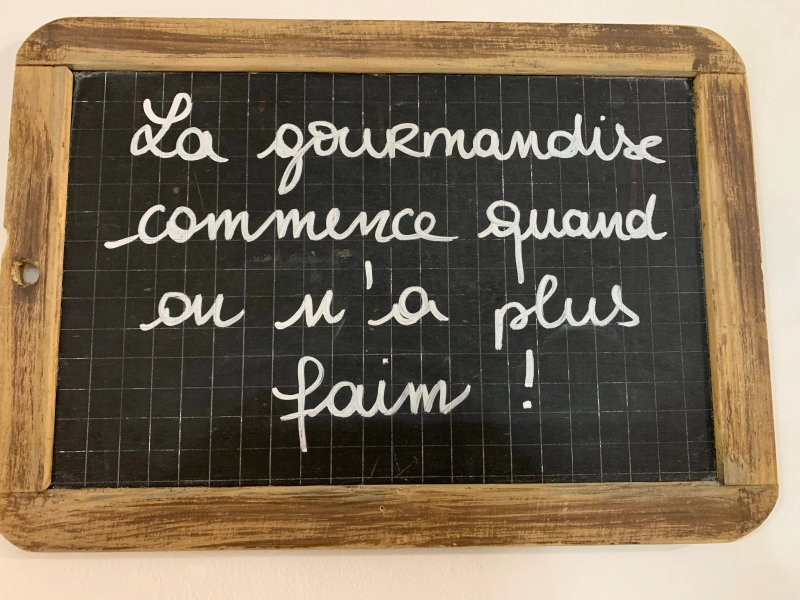 La gourmandise
commence quand
on n'a plus
faim !